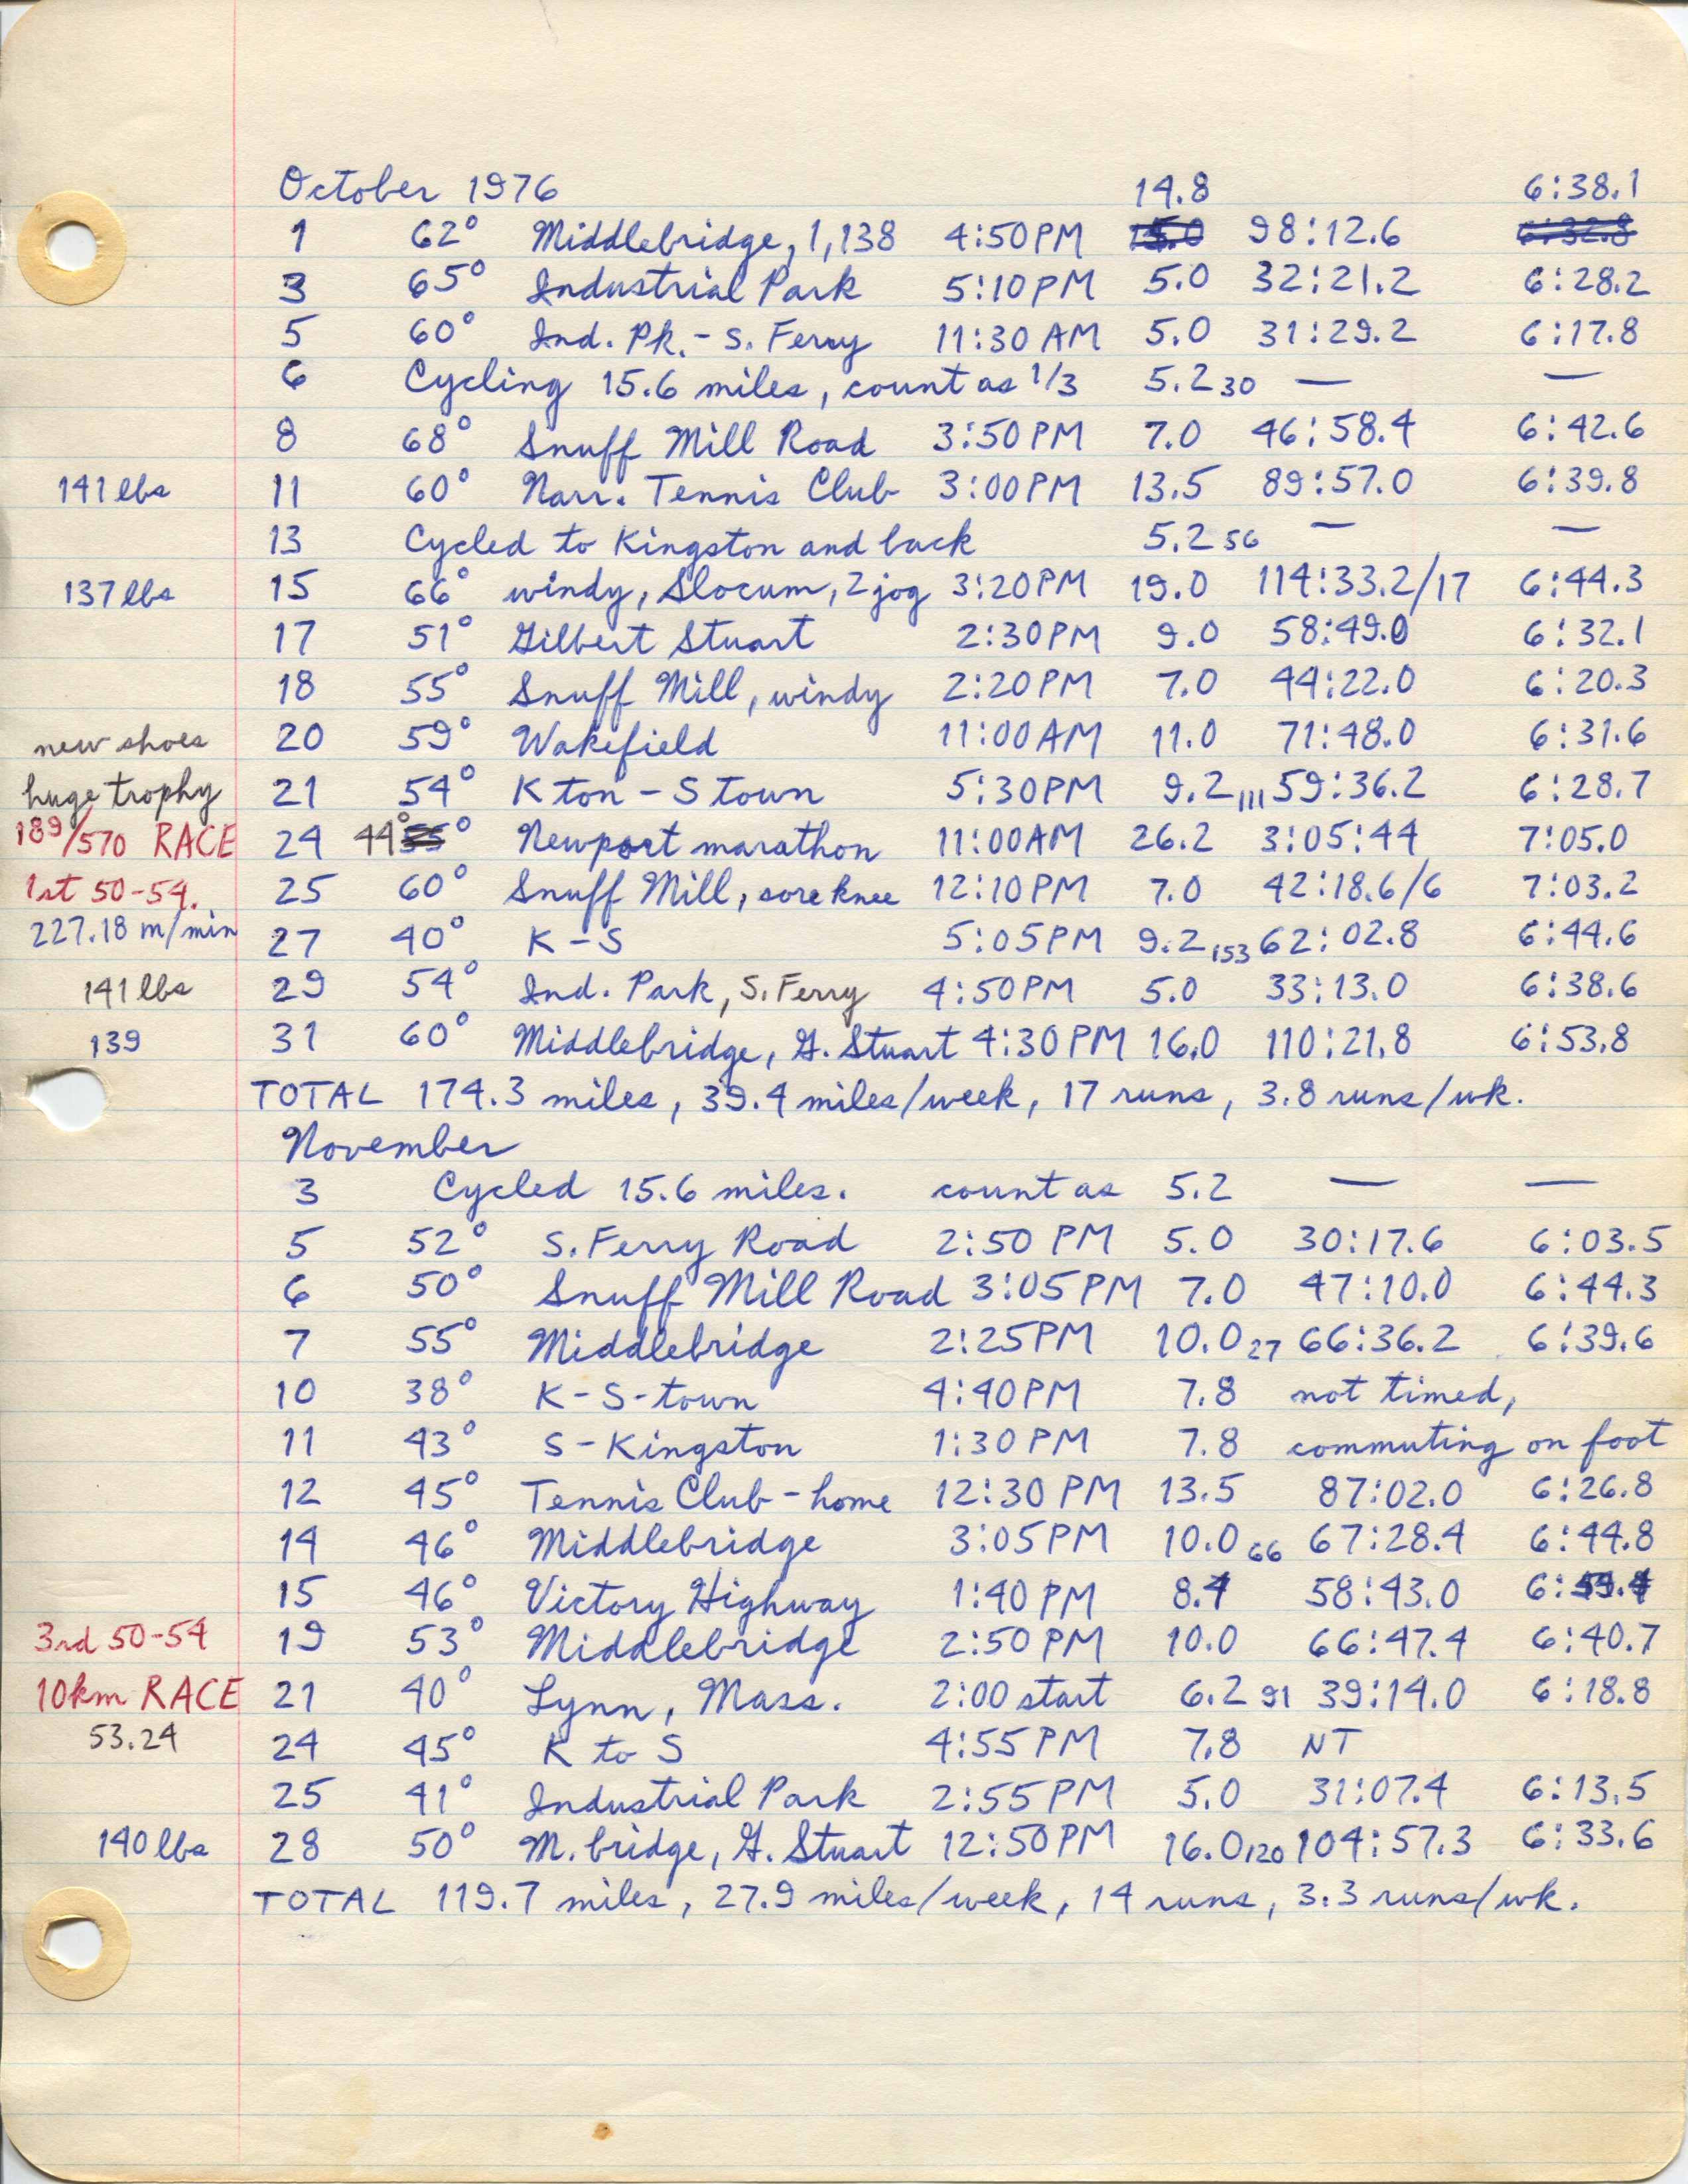 October 1976 14.8 6:38.1
1 62° Middlebridge, 1,138 4:50 PM 15.0 98:12.6 6:32.8
3 65° Industrial Park 5:10 PM 5.0 32:21.2 6:28.2
5 60° Ind. Pk. - S. Ferry 11:30 AM 5.0 31:29.2 6:17.8
6 Cycling 15.6 miles, count as 1/3 5.2 30 — —
8 68° Snuff Mill Road 3:50 PM 7.0 46:58.4 6:42.6
141 lbs 11 60° Narr. Tennis Club 3:00 PM 13.5 89:57.0 6:39.8
13 Cycled to Kingston and back 5.2 56 — —
137 lbs 15 66° windy, Slocum, 2 jog 3:20 PM 19.0 114:33.2/17 6:44.3
17 51° Gilbert Stuart 2:30 PM 9.0 58:49.0 6:32.1
18 55° Snuff Mill, windy 2:20 PM 7.0 44:22.0 6:20.3
new shoes 20 59° Wakefield 11:00 AM 11.0 71:48.0 6:31.6
huge trophy 21 54° K ton - S town 5:30 PM 9.2 111 59:36.2 6:28.7
189/570 RACE 24 44° 55° Newport marathon 11:00 AM 26.2 3:05:44 7:05.0
1st 50-54. 25 60° Snuff Mill, sore knee 12:10 PM 7.0 42:18.6/6 7:03.2
227.18 m/min 27 40° K - S 5:05 PM 9.2 153 62:02.8 6:44.6
141 lbs 29 54° Ind. Park, S. Ferry 4:50 PM 5.0 33:13.0 6:38.6
139 31 60° Middlebridge, G. Stuart 4:30 PM 16.0 110:21.8 6:53.8
TOTAL 174.3 miles, 39.4 miles/week, 17 runs, 3.8 runs/wk.
November
3 Cycled 15.6 miles. count as 5.2 — —
5 52° S. Ferry Road 2:50 PM 5.0 30:17.6 6:03.5
6 50° Snuff Mill Road 3:05 PM 7.0 47:10.0 6:44.3
7 55° Middlebridge 2:25 PM 10.0 27 66:36.2 6:39.6
10 38° K - S - town 4:40 PM 7.8 not timed,
11 43° S - Kingston 1:30 PM 7.8 commuting on foot
12 45° Tennis Club - home 12:30 PM 13.5 87:02.0 6:26.8
14 46° Middlebridge 3:05 PM 10.0 66 67:28.4 6:44.8
15 46° Victory Highway 1:40 PM 8.4 58:43.0
3rd 50-54 19 53° Middlebridge 2:50 PM 10.0 66:47.4 6:40.7
10km RACE 21 40° Lynn, Mass. 2:00 start 6.2 91 39:14.0 6:18.8
53.24 24 45° K to S 4:55 PM 7.8 NT
25 41° Industrial Park 2:55 PM 5.0 31:07.4 6:13.5
140 lbs 28 50° M. bridge, G. Stuart 12:50 PM 16.0 120 104:57.3 6:33.6
TOTAL 119.7 miles, 27.9 miles/week, 14 runs, 3.3 runs/wk.